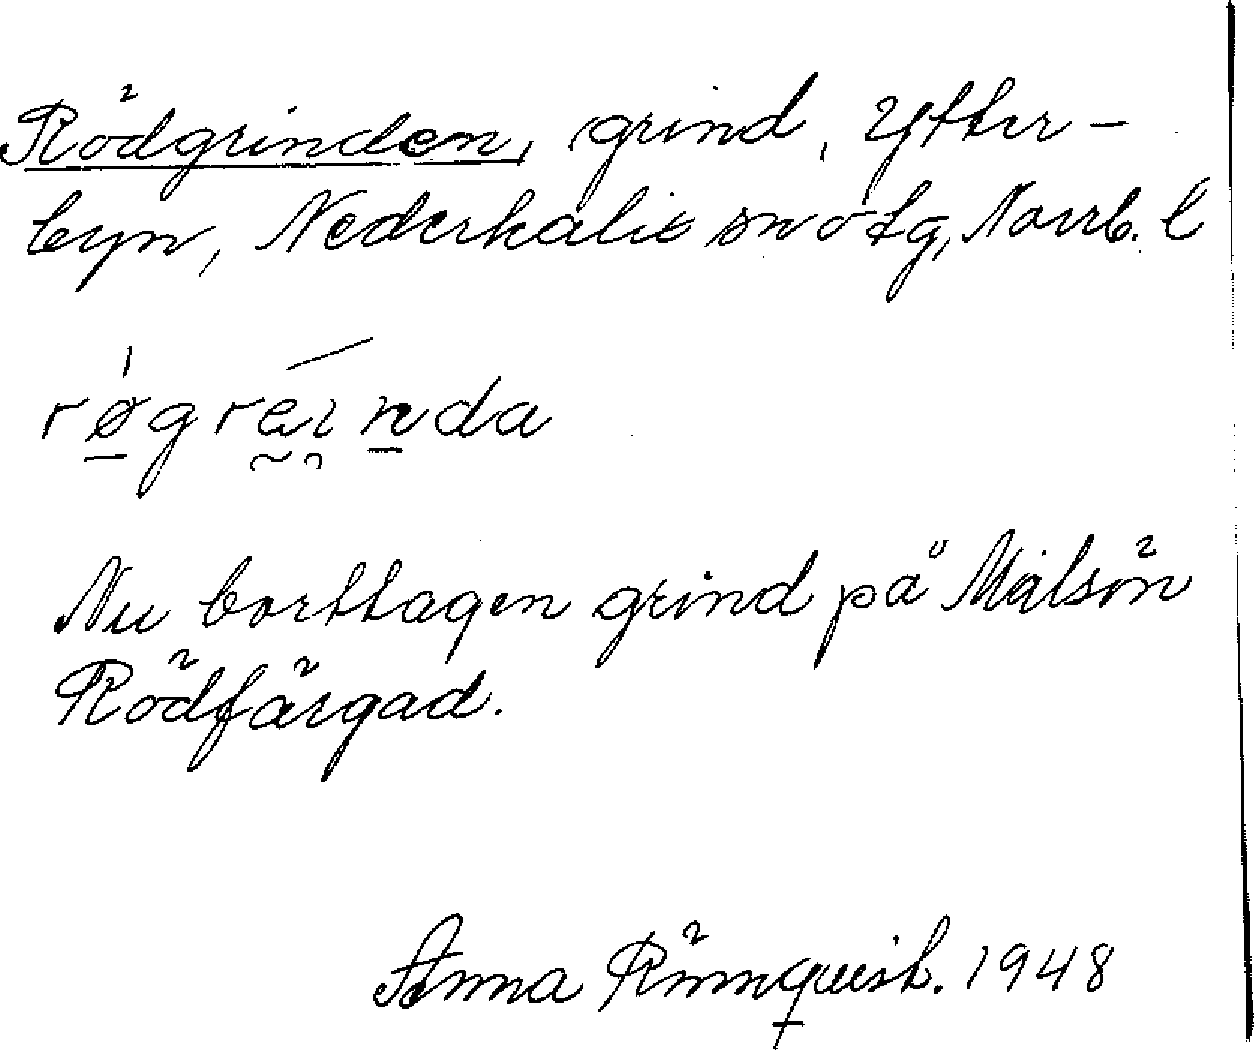 Rödgrinden, grind, Ytter-
byn, Nederkalix sn o tg, Norrb. l
røgräinda
Nu borttagen grind på Målsön
Rödfärgad.
Anna Rönnquist. 1948